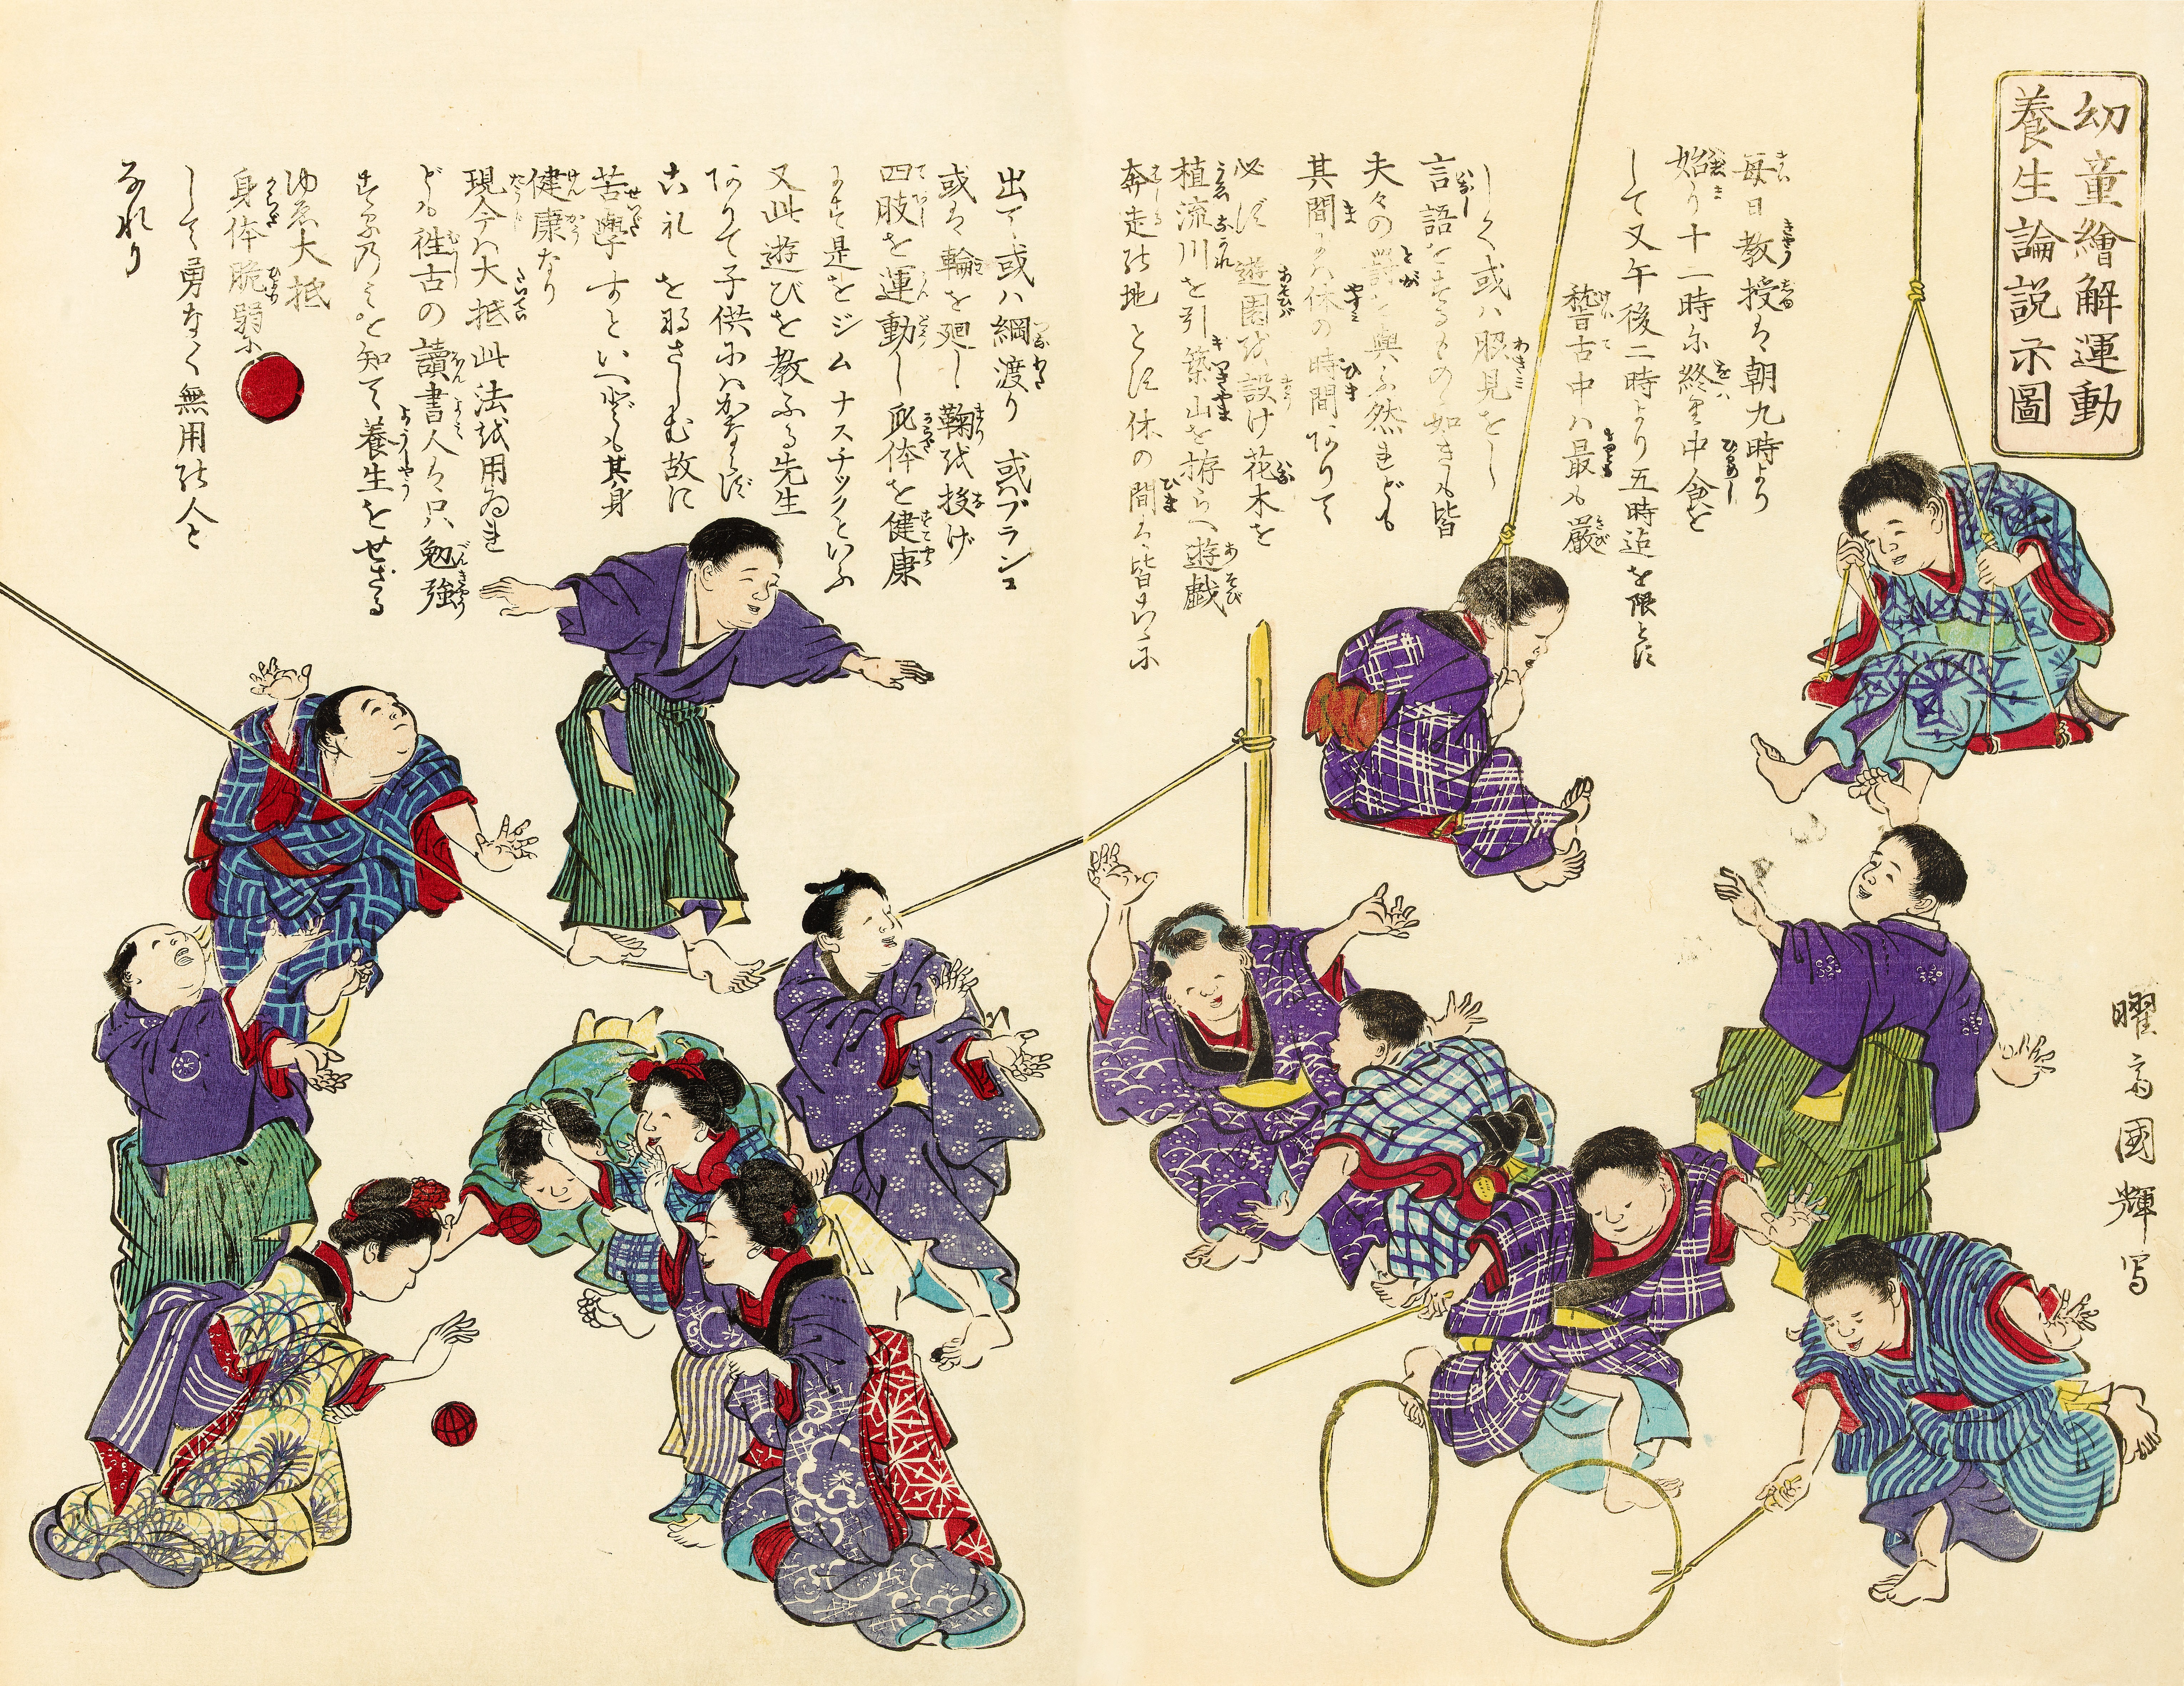 幼童繪解運動
養生論説示圖
毎日教授は朝九時より
始り十二時に終里中食を
して又午後二時より五時迄を限とす
稽古中ハ最も嚴
しく或ハ脇見をし
言語をするもの如きも皆
夫々の罸を與ふ然れども
其間には休の時間ありて
必ず遊園を設け花木を
植流川を引築山を拵らへ遊戯
奔走の地とす休の間は皆こゝに
出て或ハ綱渡り或ハブランコ
或は輪を廻し鞠を投げ
四肢を運動し身体を健康
にす是をジムナスチックといふ
又此遊びを教ふる先生
ありて子供にハかならず
これをなさしむ故に
苦學すといへども其身
健康なり
現今ハ大抵此法を用ゐれ
ども徃古の讀書人は只勉強
するのみを知て養生をせざる
ゆゑ大抵
身体脆弱に
して勇なく無用の人と
なれり
曜斎國輝写